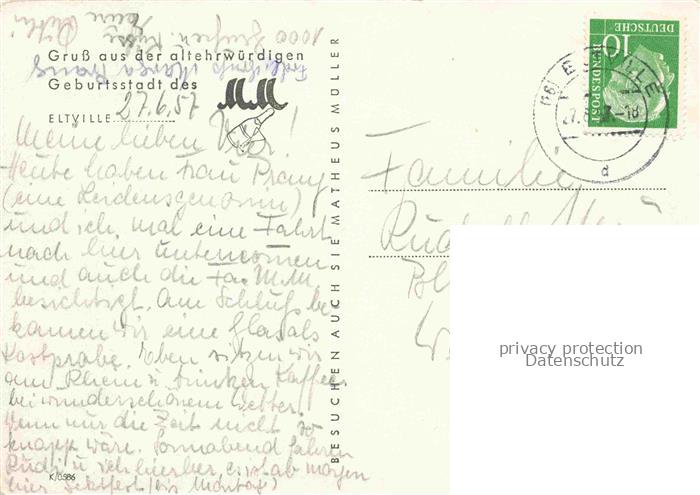 1000
Gruß aus der altehrwürdigen
Geburtsstadt des
MM
ELTVILLE 27.6.57
Meine lieben
Heute haben Frau
(eine Leidensgenossin)
und ich mal eine Fahrt
nach hier unternommen
und auch die Fa. M.M
besichtigt. Am Schluß be-
kamen wir eine Glas als
Kostprobe. Eben sitzen wir
am Rhein u. trinken Kaffee
bei wunderschönem Wetter.
Wenn nur die Zeit nicht so
knapp wäre. Sonnabend fahren
Rudi u. ich hierher, es ist ab morgen
hier Sektfest (bis Montag)
K/0586
BESUCHEN AUCH SIE MATHEUS MÜLLER
10
DEUTSCHE
BUNDESPOST
ELTVILLE
-18
d
Familie
privacy protection
Datenschutz